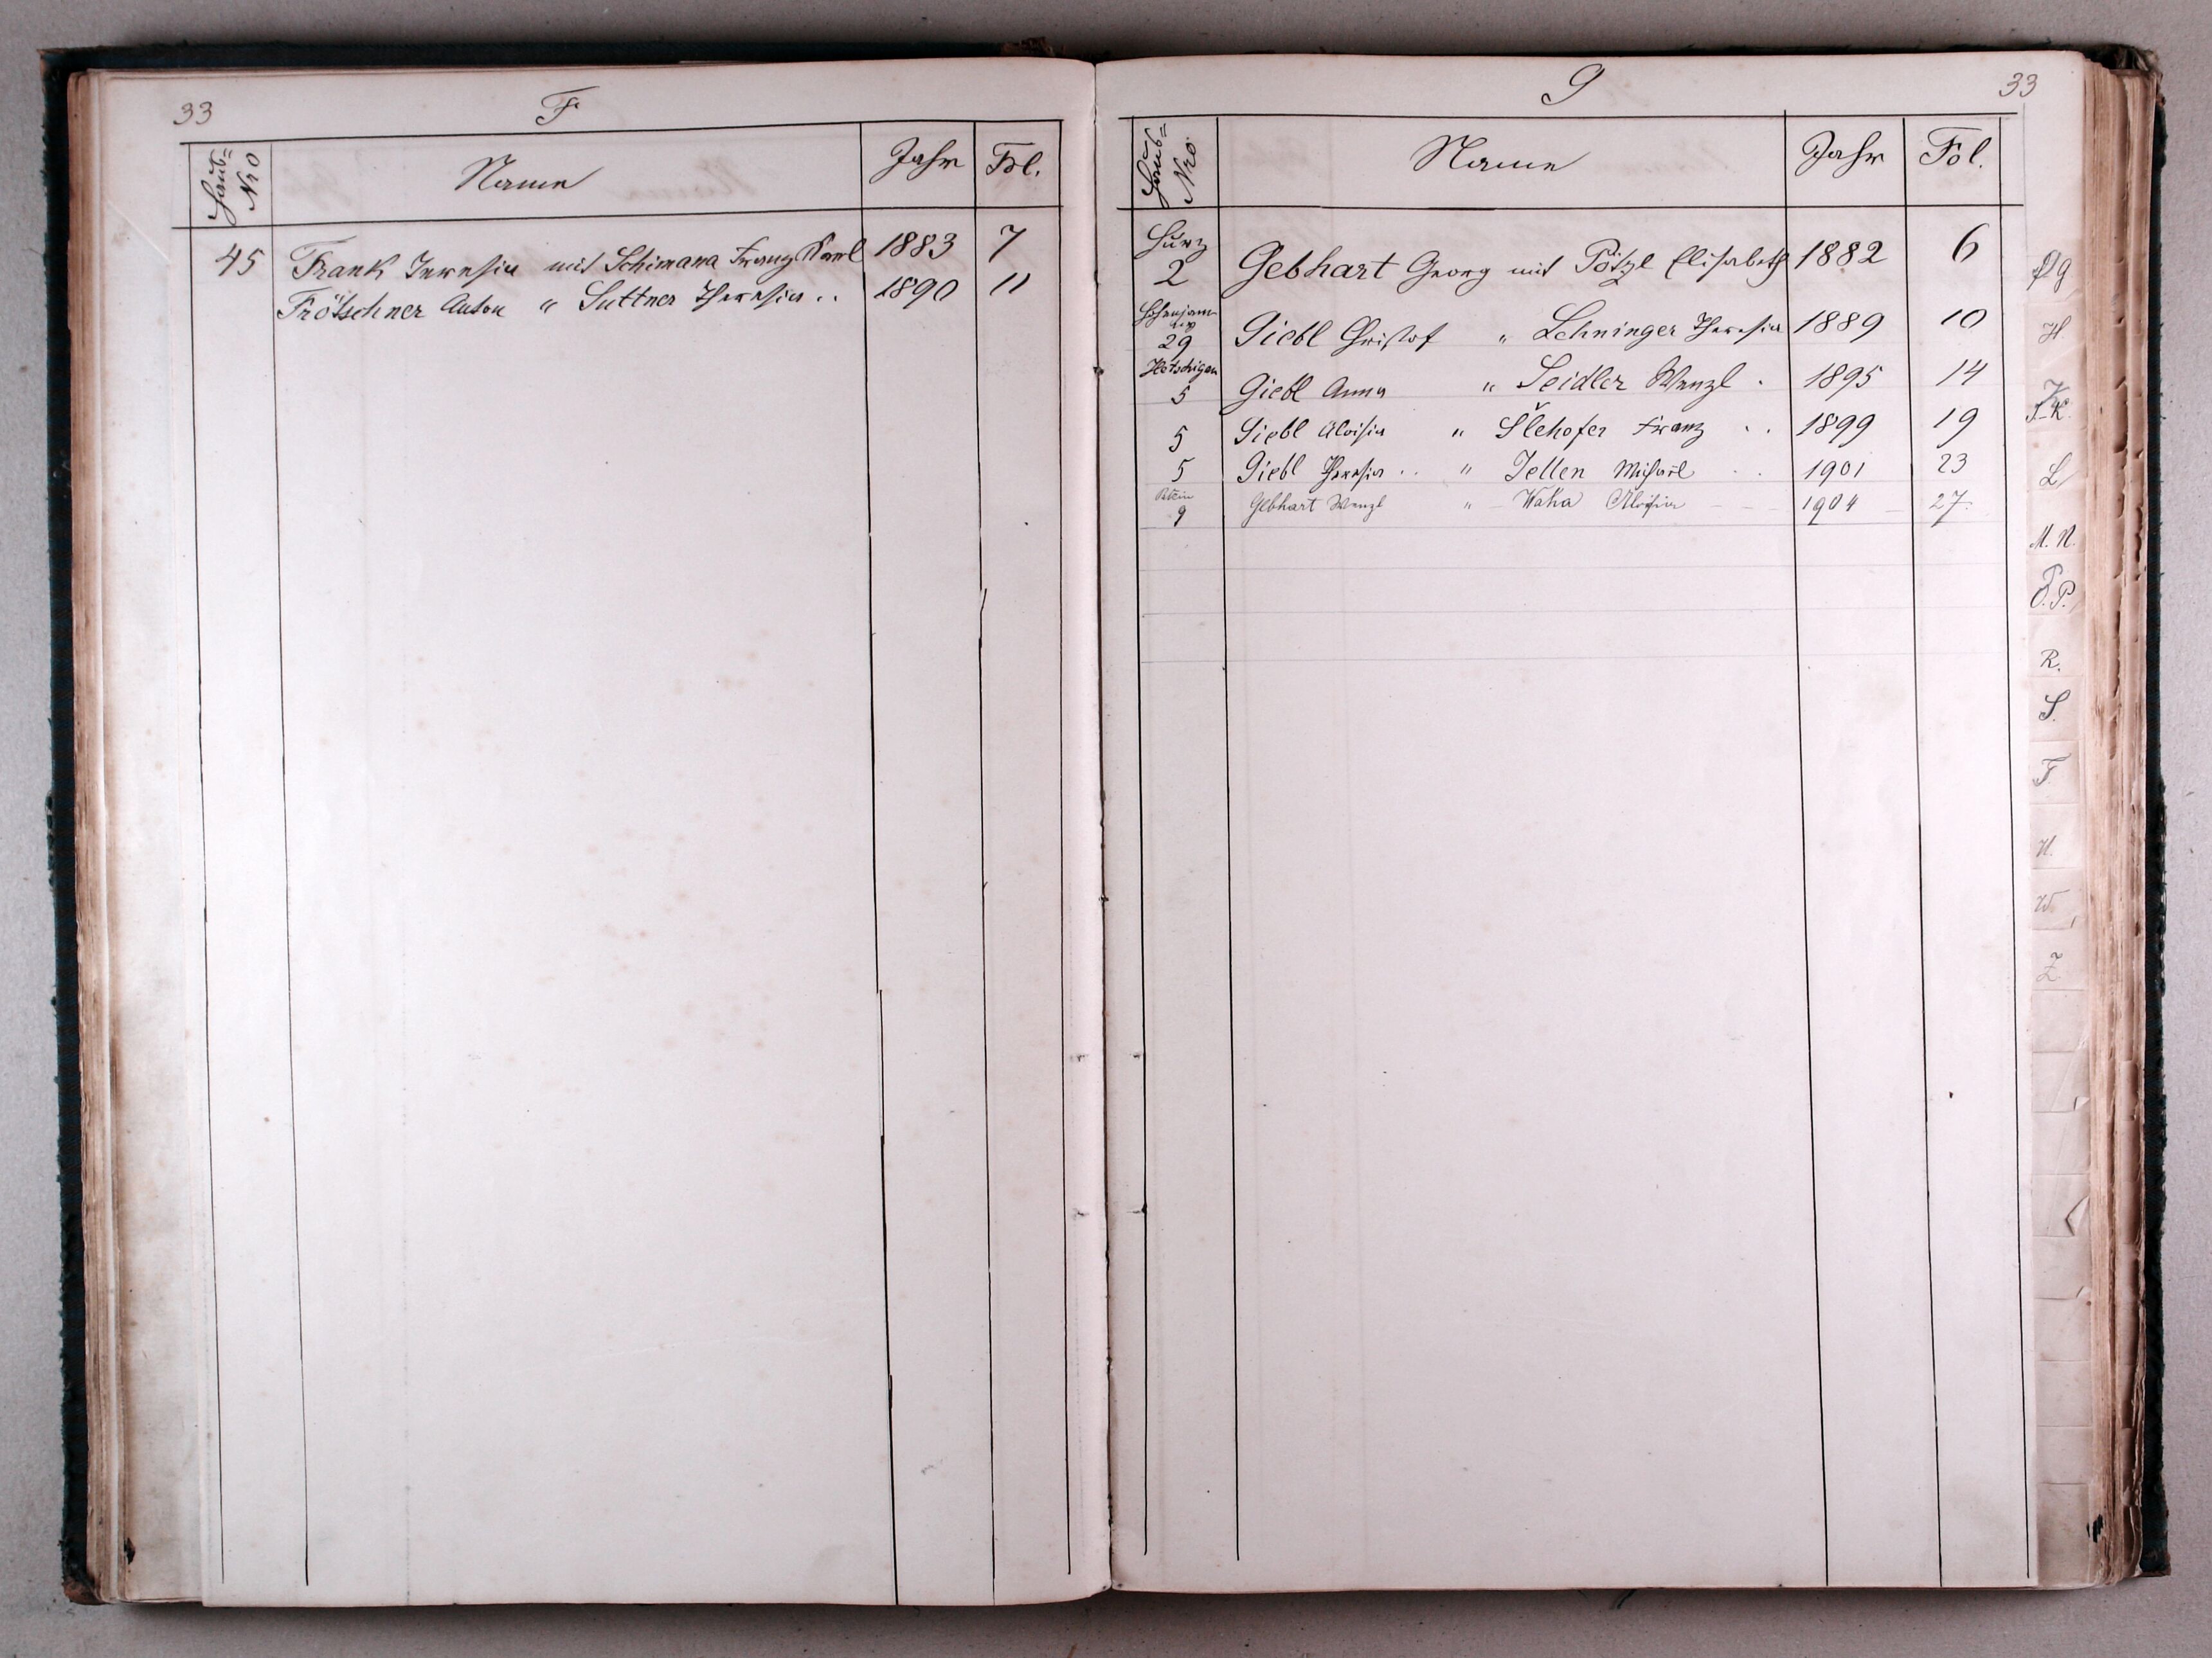 33
F
Haus=
Nro
Name
Jahr
Fol.
45 Frank Theresia mit Schimana Franz Karl 1883 7
Frötschner Anton " Suttner Theresia .. 1890 11
33
G
Haus=
Nro
Name
Jahr
Fol.
Hurz
2 Gebhart Georg mit Pötzl Elisabeth 1882 6
29 Giebl Christof " Lehninger Theresia 1889 10
Hotschigau
5 Giebl Anna " Seidler Wenzl . 1895 14
5 Giebl Aloisia " Šlehofer Franz .. 1899 19
5 Giebl Theresia .. " Jellen Michael .. 1901 23
9 Gebhart Wenzl " Waha Aloisia 1904 27.
G
H.
J.K.
L
M.N.
O.P.
R.
S.
T.
W
Z